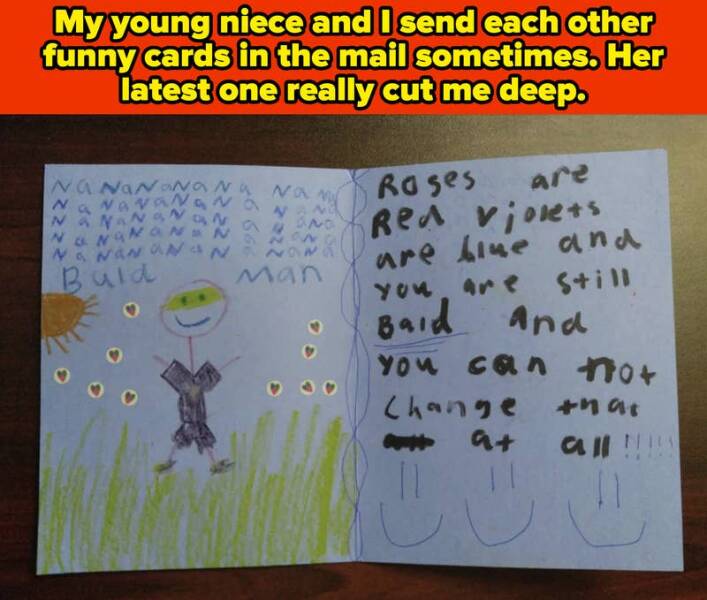 My young niece and I send each other
funny cards in the mail sometimes. Her
latest one really cut me deep.
NaNaNaNaNa NaNa
NaNaNaNaNa NaNa
NaNaNaNaNa NaNa
NaNaNaNaNa NaNa
NaNaNaNaNa NaNa
Bald Man
Roses are
Red violets
are blue and
you are still
Bald And
you can not
change that
at all !!!!!!